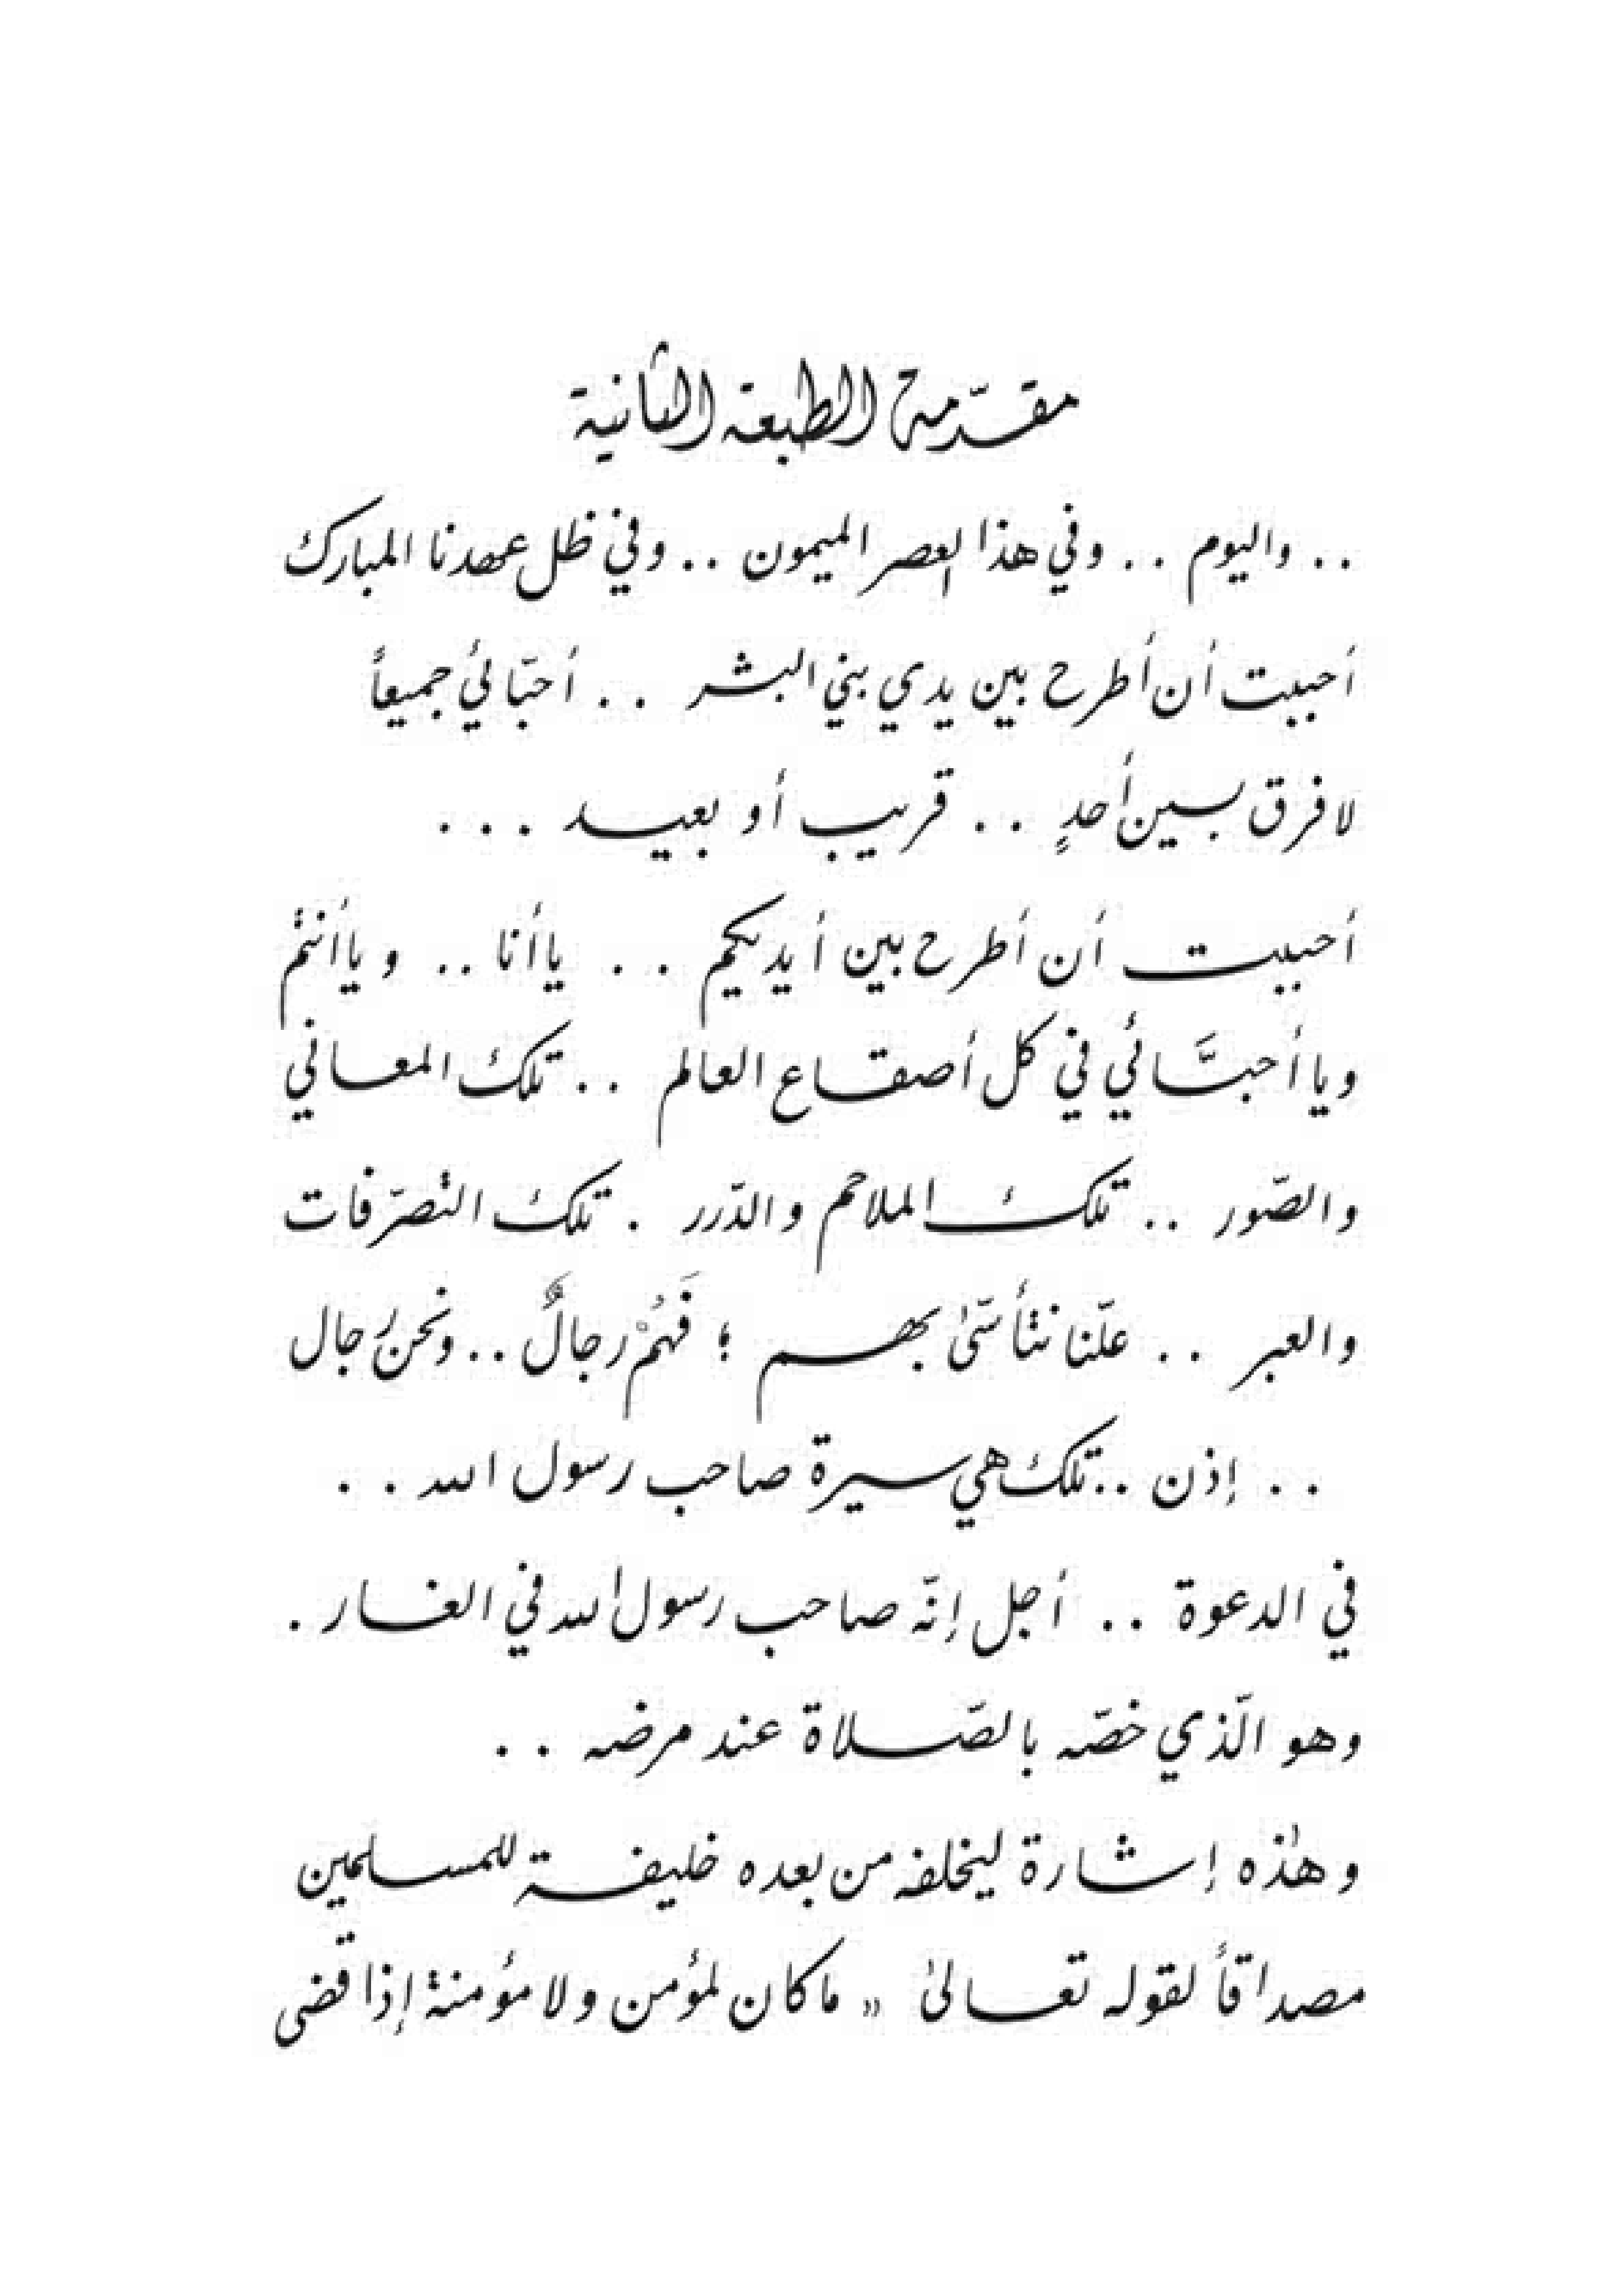 مقدّمة الطبعة الثانية
.. واليوم .. وفي هذا العصر الميمون .. وفي ظل عهدنا المبارك
أحببت أن أطرح بين يدي بني البشر .. أحبّائي جميعاً
لا فرق بين أحدٍ .. قريب أو بعيد ...
أحببت أن أطرح بين أيديكم .. يا أنا .. ويا أنتم
ويا أحبَّائي في كل أصقاع العالم .. تلك المعاني
والصّور .. تلك الملاحم والدّرر . تلك التصرّفات
والعبر .. علّنا نتأسّىٰ بهم ؛ فَهُمْ رجالٌ .. ونحن رُجال
.. إذن .. تلك هي سيرة صاحب رسول الله ..
في الدعوة .. أجل إنّه صاحب رسول الله في الغار .
وهو الّذي خصّه بالصّلاة عند مرضه ..
وهٰذه إشارة ليخلفه من بعده خليفة للمسلمين
مصداقاً لقوله تعالىٰ « ما كان لمؤمن ولا مؤمنة إذا قضى